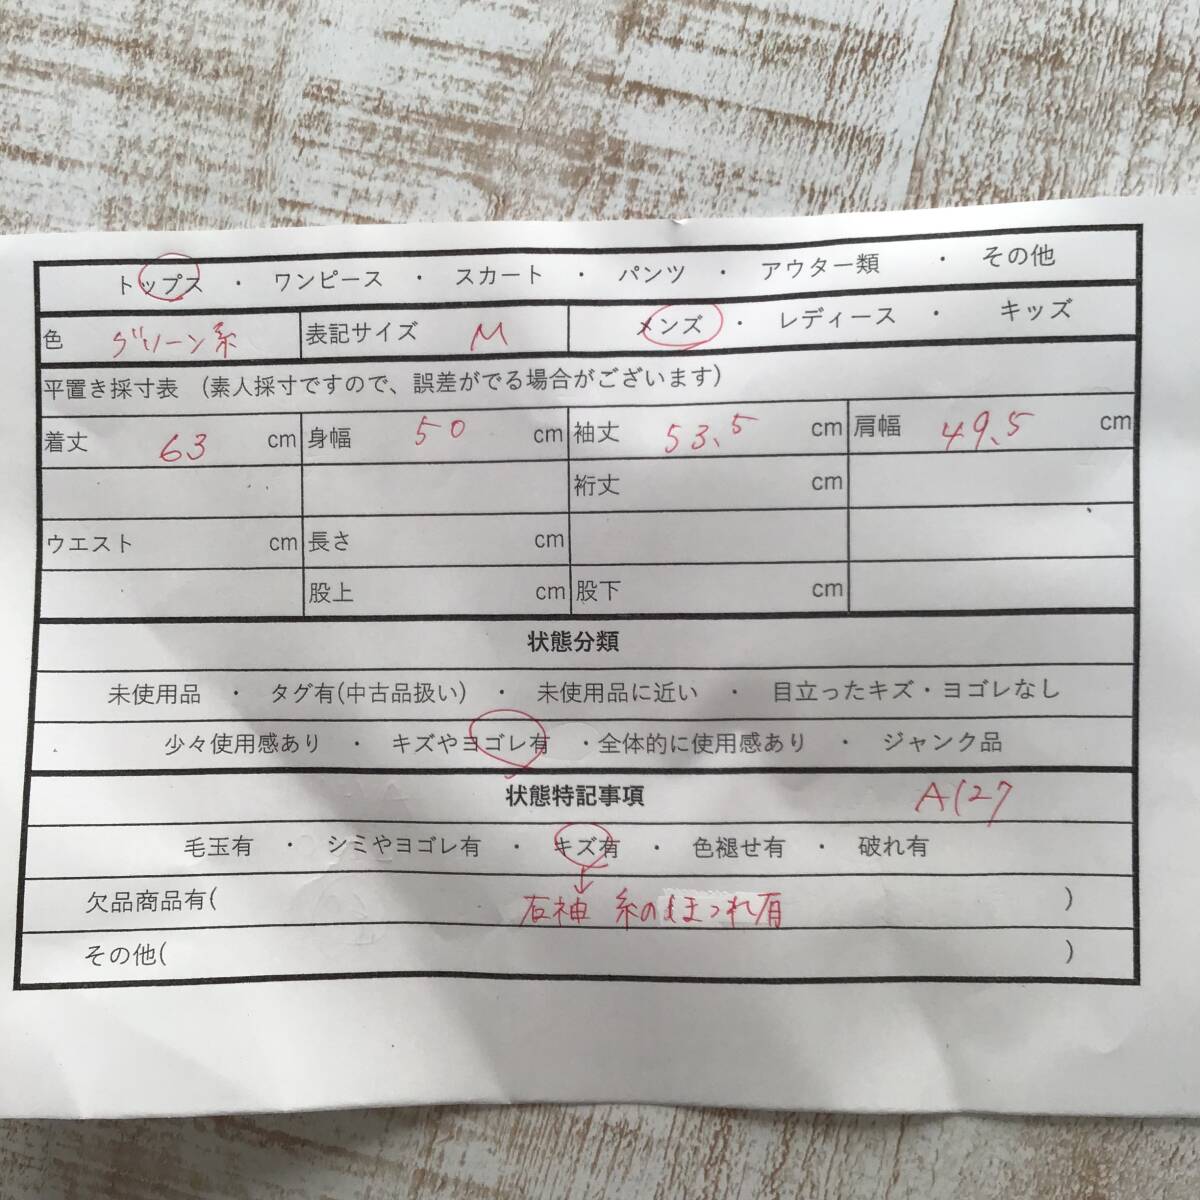 トップス ・ ワンピース ・ スカート ・ パンツ ・ アウター類 ・ その他
色 グリーン系 表記サイズ M メンズ ・ レディース ・ キッズ
平置き採寸表 (素人採寸ですので、誤差がでる場合がございます)
着丈 63 cm 身幅 50 cm 袖丈 53.5 cm 肩幅 49.5 cm
裄丈 cm
ウエスト cm 長さ cm
股上 cm 股下 cm
状態分類
未使用品 ・ タグ有(中古品扱い) ・ 未使用品に近い ・ 目立ったキズ・ヨゴレなし
少々使用感あり ・ キズやヨゴレ有 ・全体的に使用感あり ・ ジャンク品
状態特記事項 A127
毛玉有 ・ シミやヨゴレ有 ・ キズ有 ・ 色褪せ有 ・ 破れ有
欠品商品有( 右袖 糸のほつれ有 )
その他( )